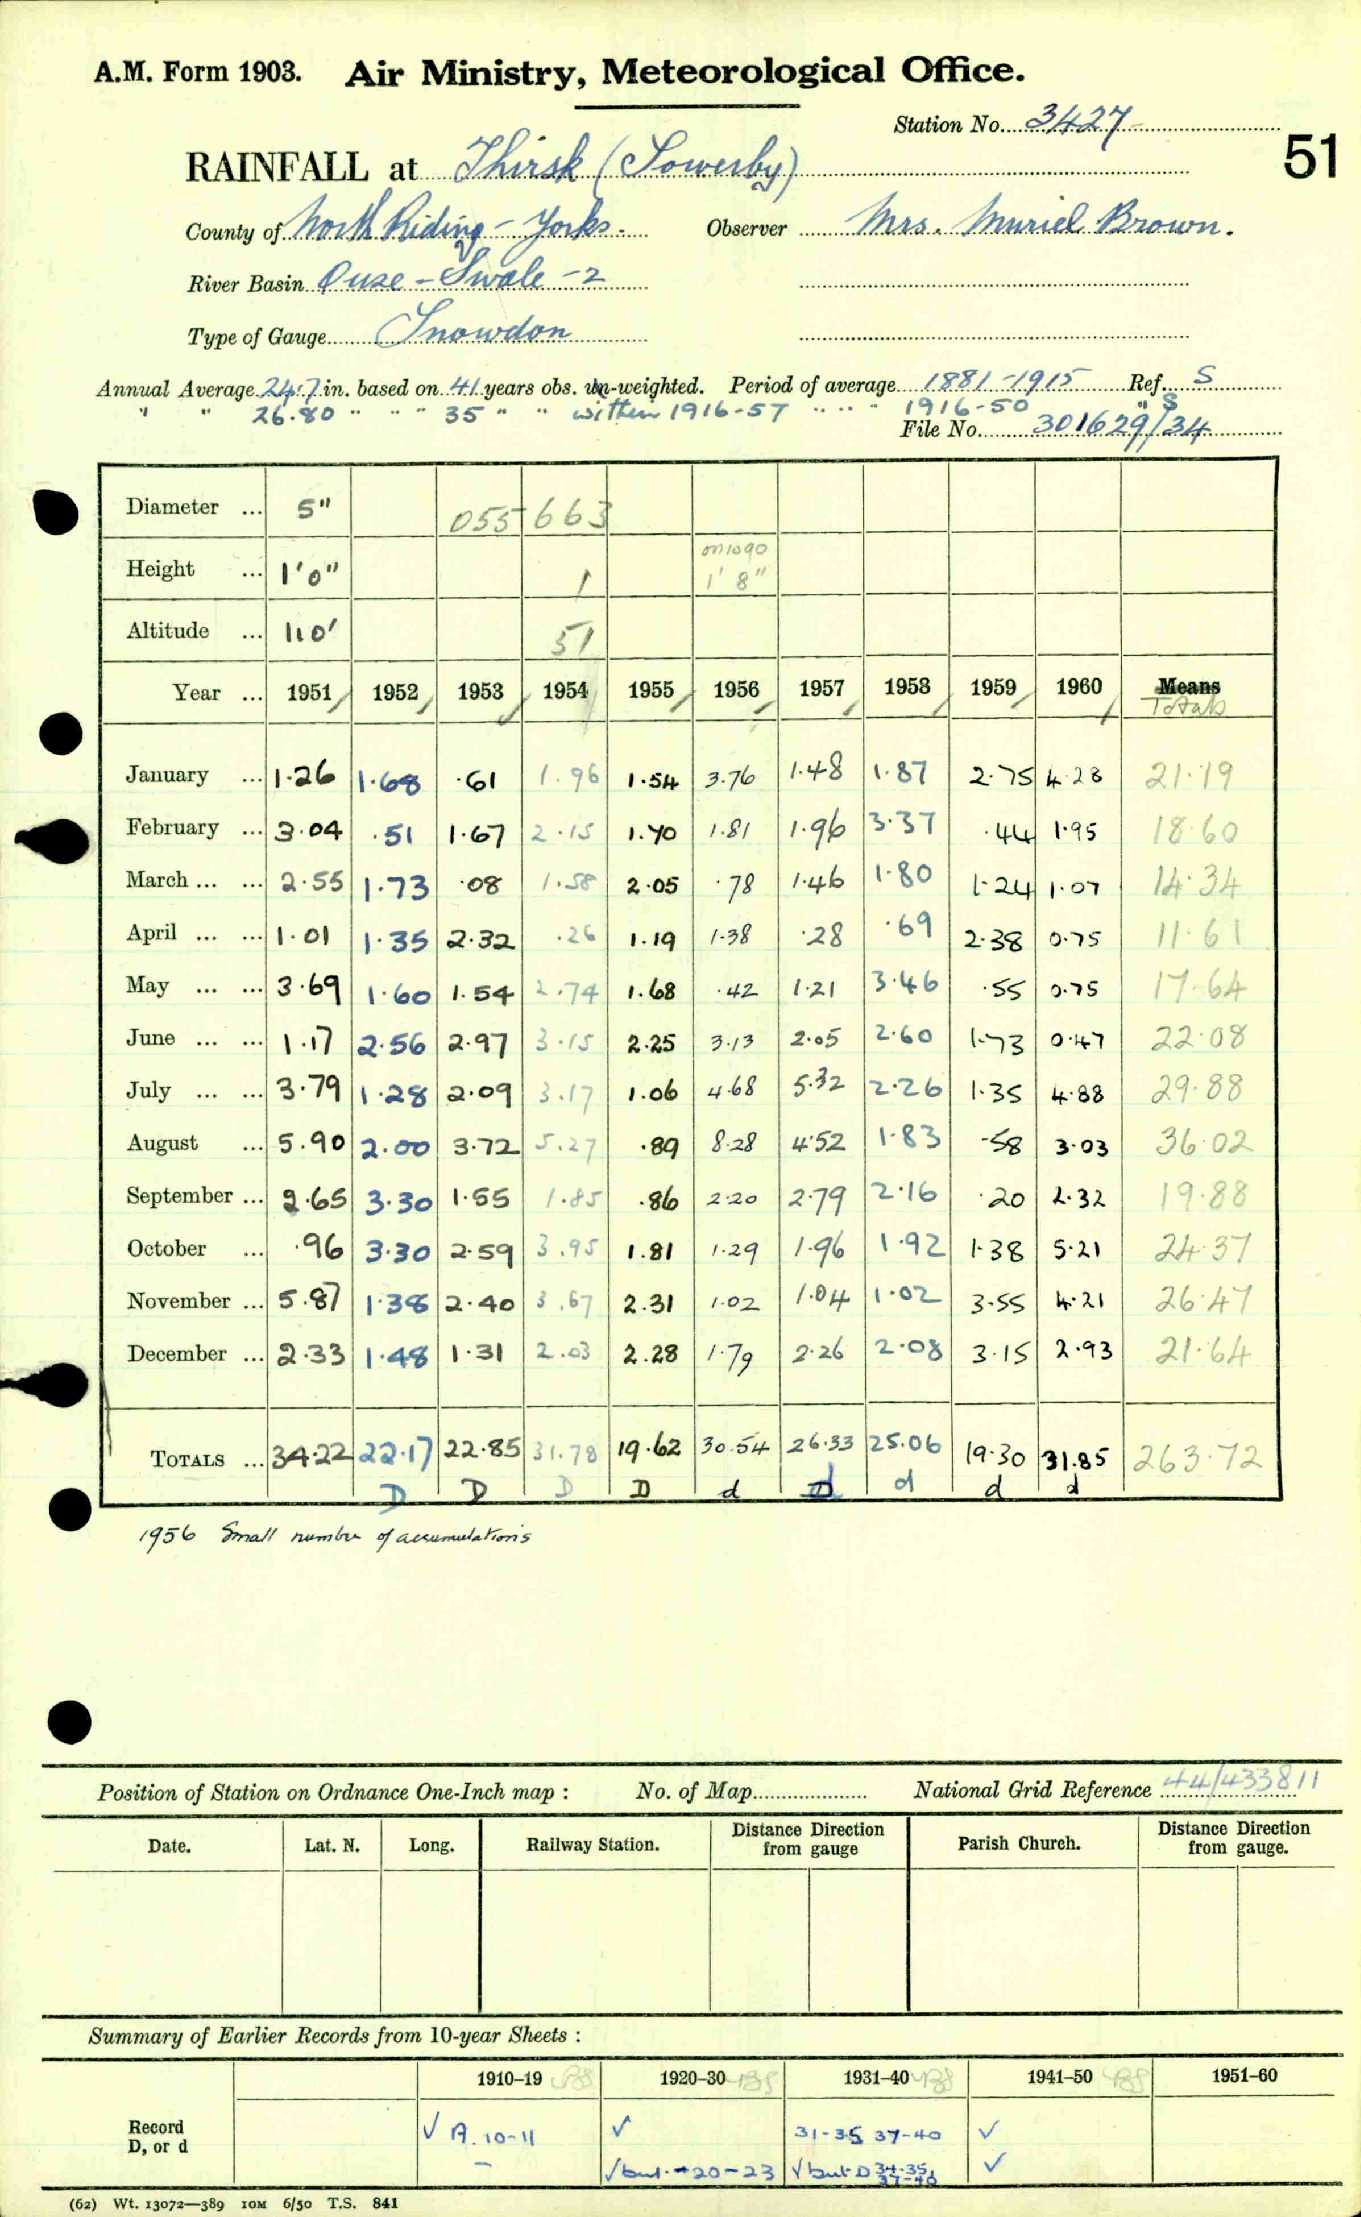 A.M. Form 1903. Air Ministry, Meteorological Office.
Station No. 3427
51
RAINFALL at Thirsk (Sowerby)
County of North Riding - Yorks. Observer Mrs. Muriel Brown.
River Basin Ouse - Swale - 2
Type of Gauge Snowdon
Annual Average 24.7 in. based on 41 years obs. un-weighted. Period of average 1881-1915 Ref. S
" " 26.80 " " " 35 " " within 1916-57 " " " 1916-50 " S
File No. 301629/34
Diameter ... 5" 055 663
Height ... 1'0" 1 1' 8"
Altitude ... 110' 51
Year ... 1951 1952 1953 1954 1955 1956 1957 1958 1959 1960 Means
Totals
January ... 1.26 1.68 .61 1.96 1.54 3.76 1.48 1.87 2.75 4.28 21.19
February ... 3.04 .51 1.67 2.15 1.70 1.81 1.96 3.37 .44 1.95 18.60
March ... ... 2.55 1.73 .08 1.58 2.05 .78 1.46 1.80 1.24 1.07 14.34
April ... ... 1.01 1.35 2.32 .26 1.19 1.38 .28 .69 2.38 0.75 11.61
May ... ... 3.69 1.60 1.54 2.74 1.68 .42 1.21 3.46 .55 0.75 17.64
June ... ... 1.17 2.56 2.97 3.15 2.25 3.13 2.05 2.60 1.73 0.47 22.08
July ... ... 3.79 1.28 2.09 3.17 1.06 4.68 5.32 2.26 1.35 4.88 29.88
August ... 5.90 2.00 3.72 5.27 .89 8.28 4.52 1.83 .58 3.03 36.02
September ... 2.65 3.30 1.55 1.85 .86 2.20 2.79 2.16 .20 2.32 19.88
October ... .96 3.30 2.59 3.95 1.81 1.29 1.96 1.92 1.38 5.21 24.37
November ... 5.87 1.38 2.40 3.67 2.31 1.02 1.04 1.02 3.55 4.21 26.47
December ... 2.33 1.48 1.31 2.03 2.28 1.79 2.26 2.08 3.15 2.93 21.64
TOTALS ... 34.22 22.17 22.85 31.78 19.62 30.54 26.33 25.06 19.30 31.85 263.72
D D D D d d d d d
1956 Small number of accumulations
Position of Station on Ordnance One-Inch map : No. of Map National Grid Reference 44/433811
Date. Lat. N. Long. Railway Station. Distance Direction from gauge Parish Church. Distance Direction from gauge.
Summary of Earlier Records from 10-year Sheets :
1910-19 1920-30 1931-40 1941-50 1951-60
Record ✓ A. 10-11 ✓ 31-35 37-40 ✓
D, or d - ✓ but 20-23 ✓ but D 34-35, 37-40 ✓
(62) Wt. 13072—389 10M 6/50 T.S. 841